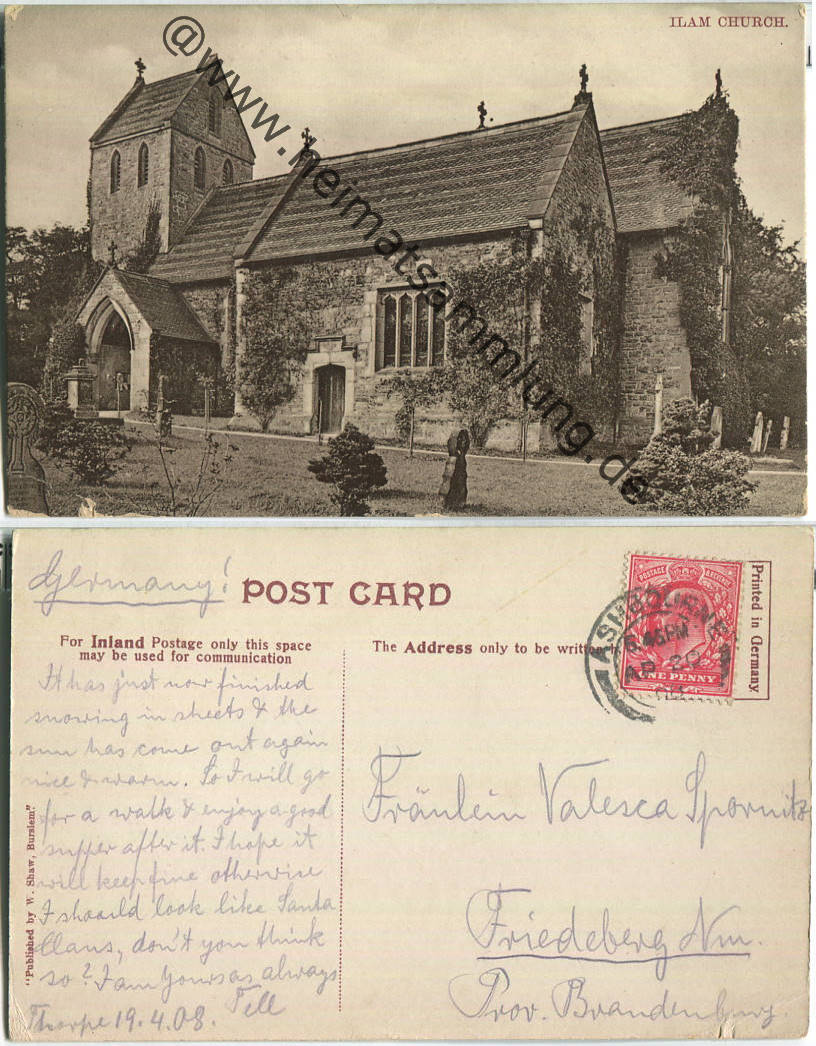 ILAM CHURCH.
@www.heimatsammlung.de
Germany!
POST CARD
For Inland Postage only this space
may be used for communication
The Address only to be written
Printed in Germany
ASHBOURNE
6.45PM
AP 20
POSTAGE REVENUE
ONE PENNY
It has just now finished
snowing in sheets & the
sun has come out again
nice & warm. So I will go
for a walk & enjoy a good
supper after it. I hope it
will keep fine otherwise
I should look like Santa
Claus, don't you think
so? I am Yours as always
Tell
Thorpe 19.4.08.
"Published by W. Shaw, Burslem"
Fräulein Valesca Spornitz
Friedeberg Nm.
Prov. Brandenburg.